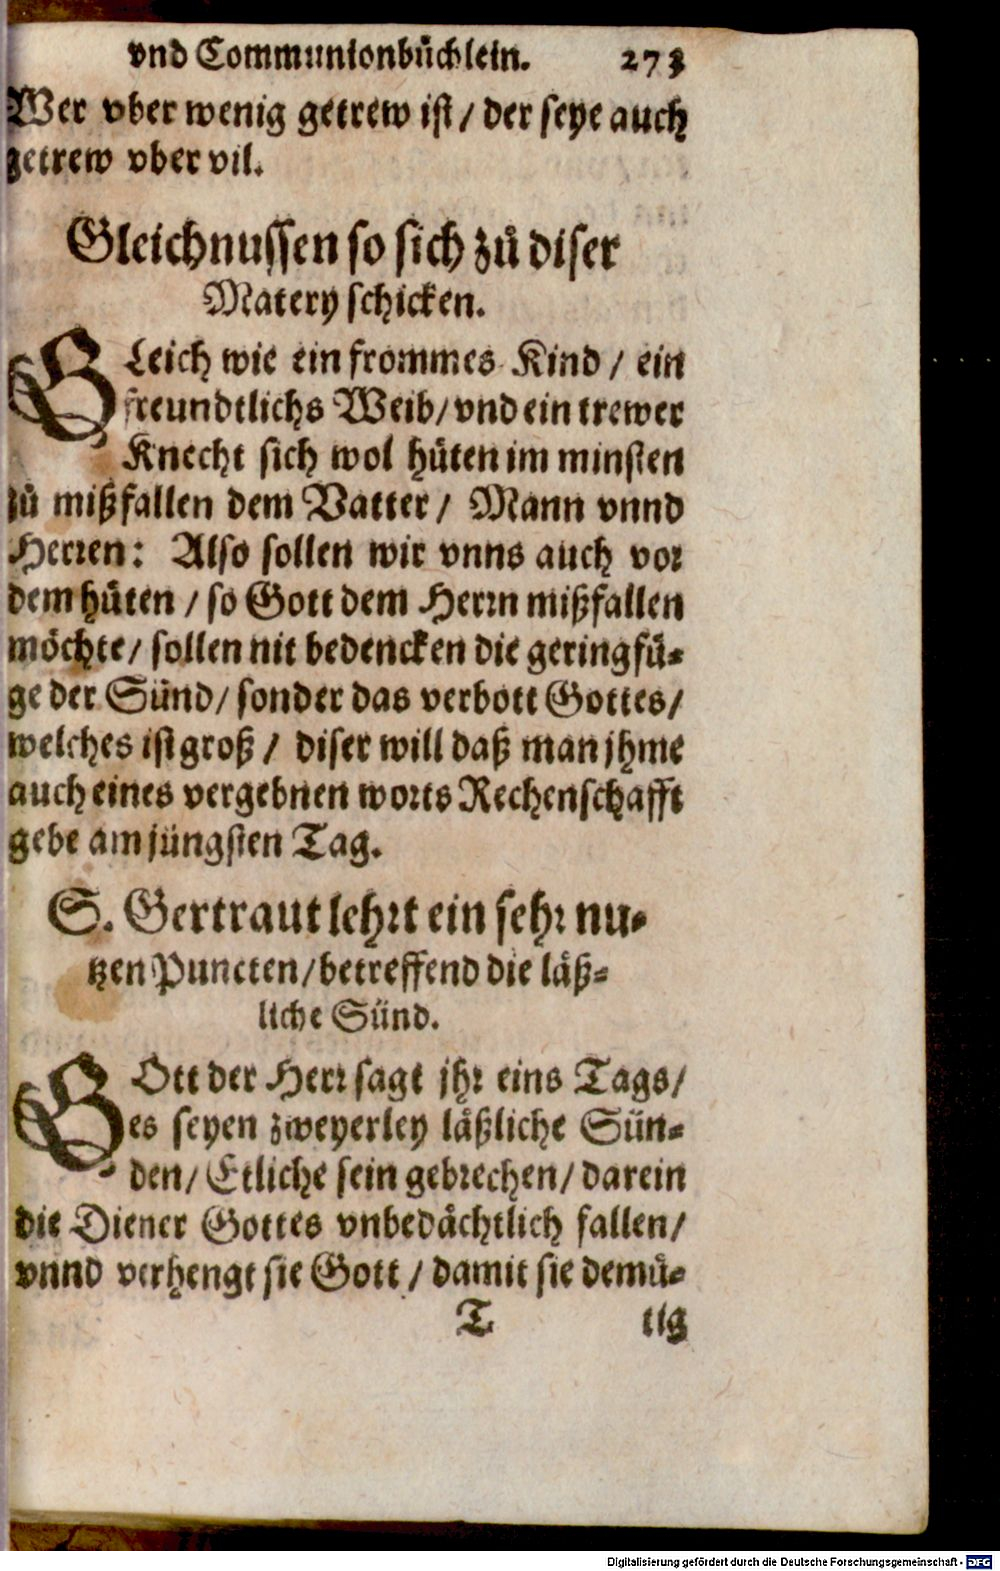 vnd Communionbüchlein. 273
Wer vber wenig getrew ist / der seye auch
getrew vber vil.
Gleichnussen so sich zů diser
Matery schicken.
GLeich wie ein frommes Kind / ein
freundtlichs Weib / vnd ein trewer
Knecht sich wol hüten im minsten
zů mißfallen dem Vatter / Mann vnnd
Herren: Also sollen wir vnns auch vor
dem hüten / so Gott dem Herrn mißfallen
möchte / sollen nit bedencken die geringfü-
ge der Sünd / sonder das verbott Gottes /
welches ist groß / diser will daß man jhme
auch eines vergebnen worts Rechenschafft
gebe am jüngsten Tag.
S. Gertraut lehrt ein sehr nu-
tzen Puncten / betreffend die läß-
liche Sünd.
GOtt der Herr sagt jhr eins Tags /
es seyen zweyerley läßliche Sün-
den / Etliche sein gebrechen / darein
die Diener Gottes vnbedächtlich fallen /
vnnd verhengt sie Gott / damit sie demü-
T tig
Digitalisierung gefördert durch die Deutsche Forschungsgemeinschaft - DFG